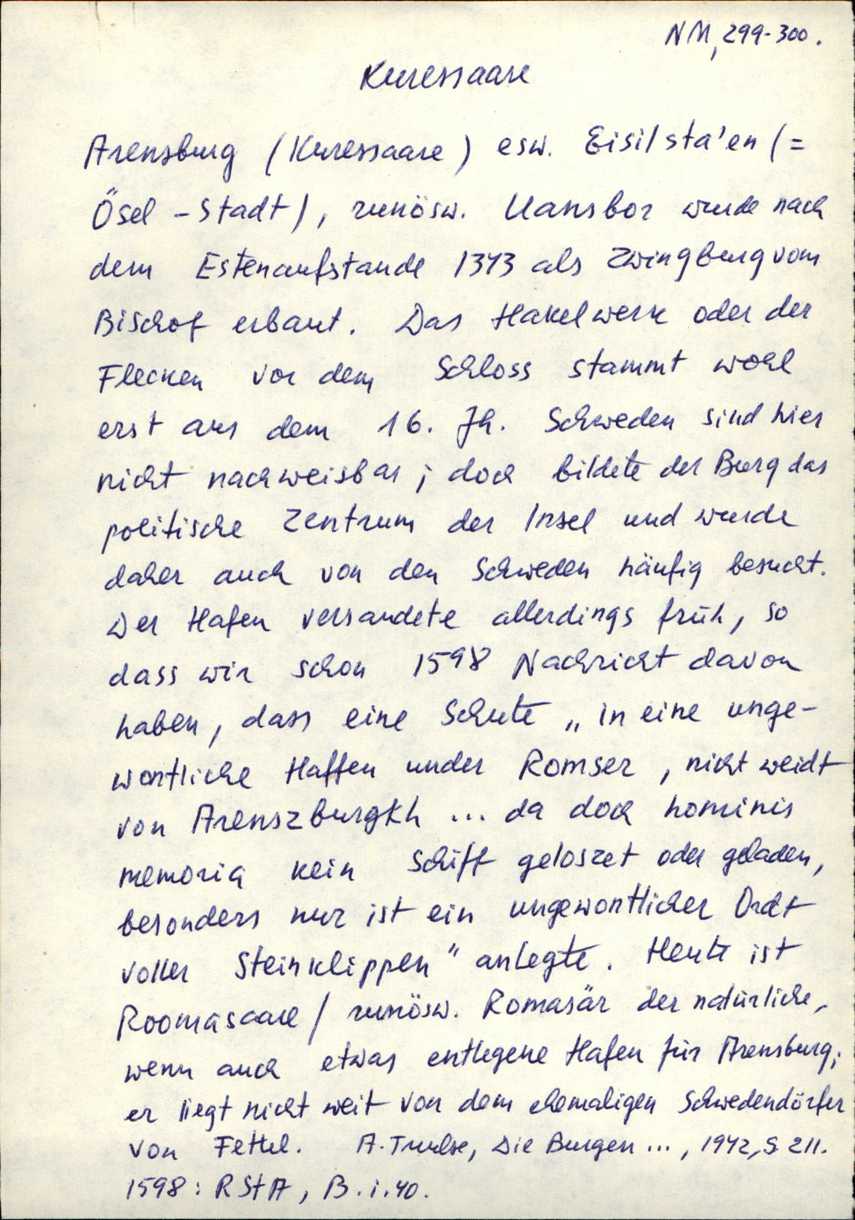 NM, 299-300.
Kuressaare
Arensburg (Kuressaare) esw. Eisilsta'en (=
Ösel - Stadt), runösw. Uansbor wurde nach
dem Estenaufstande 1343 als Zwingburg vom
Bischof erbaut. Das Hakelwerk oder der
Flecken vor dem Schloss stammt wohl
erst aus dem 16. Jh. Schweden sind hier
nicht nachweisbar; doch bildete der Burg das
politische Zentrum der Insel und wurde
daher auch von den Schweden häufig besucht.
Der Hafen versandete allerdings früh, so
dass wir schon 1598 Nachricht davon
haben, dass eine Schute „in eine unge-
wontliche Haffen under Romser, nicht weidt
von Arenszburgkh ... da doch hominis
memoria kein Schiff geloszet oder geladen,
besonders nur ist ein ungewontlicher Ordt
voller Steinklippen" anlegte. Heute ist
Roomasaare / runösw. Romasär der natürliche,
wenn auch etwas entlegene Hafen für Arensburg;
er liegt nicht weit von dem ehemaligen Schwedendörfer
von Fettel. A. Tuulse, Die Burgen ..., 1942, S 211.
1598: RStA, B.i.40.